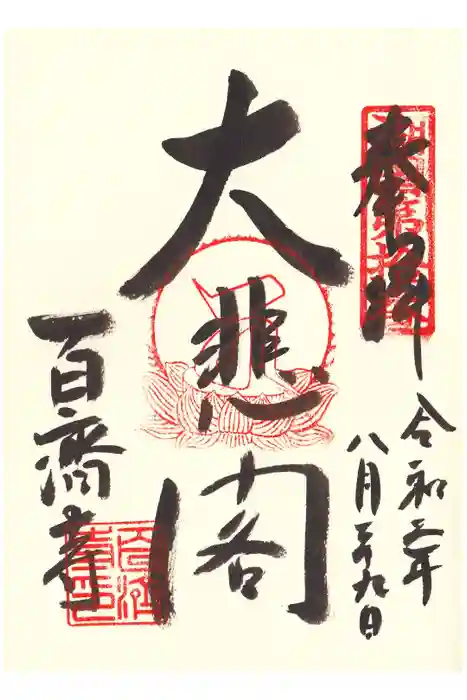 奉拝
令和三年
八月二十九日
大悲閣
百済寺